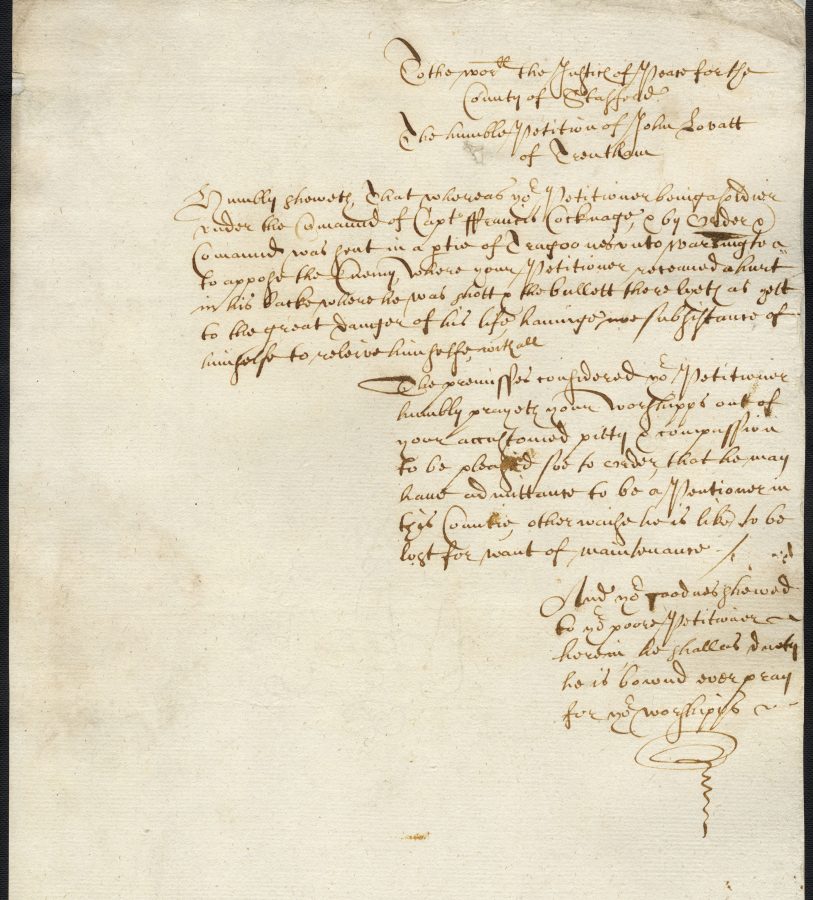 To the wor^ll the Justices of Peace for the
County of Stafford
The humble Petition of John Lovatt
of Trentham
Humbly sheweth, That whereas yo^r Petitioner being a soldier
under the Comaund of Capt ffrancis Cocknage, & by order &
Comaund was sent in a ptie of Dragoones unto Warington
to appose the Enemy where your Petitioner receaved a hurt
in his backe where he was shott & the bullett there lyeth as yett
to the great danger of his life haveinge noe subsistance of
himselfe to releive himselfe withall
The premisses considered yo^r Petitioner
humbly prayeth your Worshipps out of
your accustomed pitty & compassion
to be pleased soe to order, that he may
have admittance to be a Pentioner in
this Countie, otherwaise he is like to be
lost for want of maintenance
And yo^r goodnes shewed
to yo^r poore Petitioner
herein he shall as duety
he is bound ever pray
for yo^r worshipps